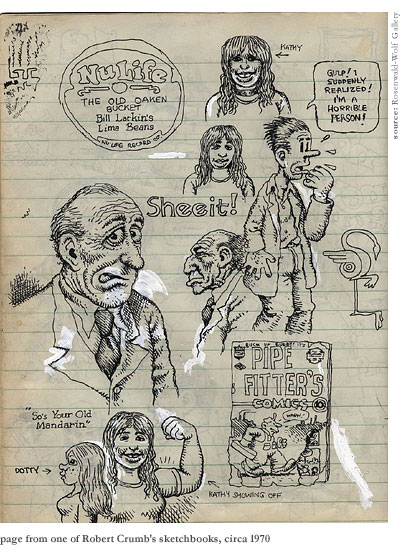 KATHY
NU Life
THE OLD OAKEN
BUCKET
Bill Larkin's
Lima Beans
NU LIFE RECORD CO
GULP! I
SUDDENLY
REALIZED!
I'M A
HORRIBLE
PERSON!
Sheeit!
BUCK UP BUDDY! IT'S
PIPE
FITTER'S
COMICS
"So's Your Old
Mandarin"
DOTTY
KATHY SHOWING OFF
page from one of Robert Crumb's sketchbooks, circa 1970
source: Rosenwald-Wolf Gallery